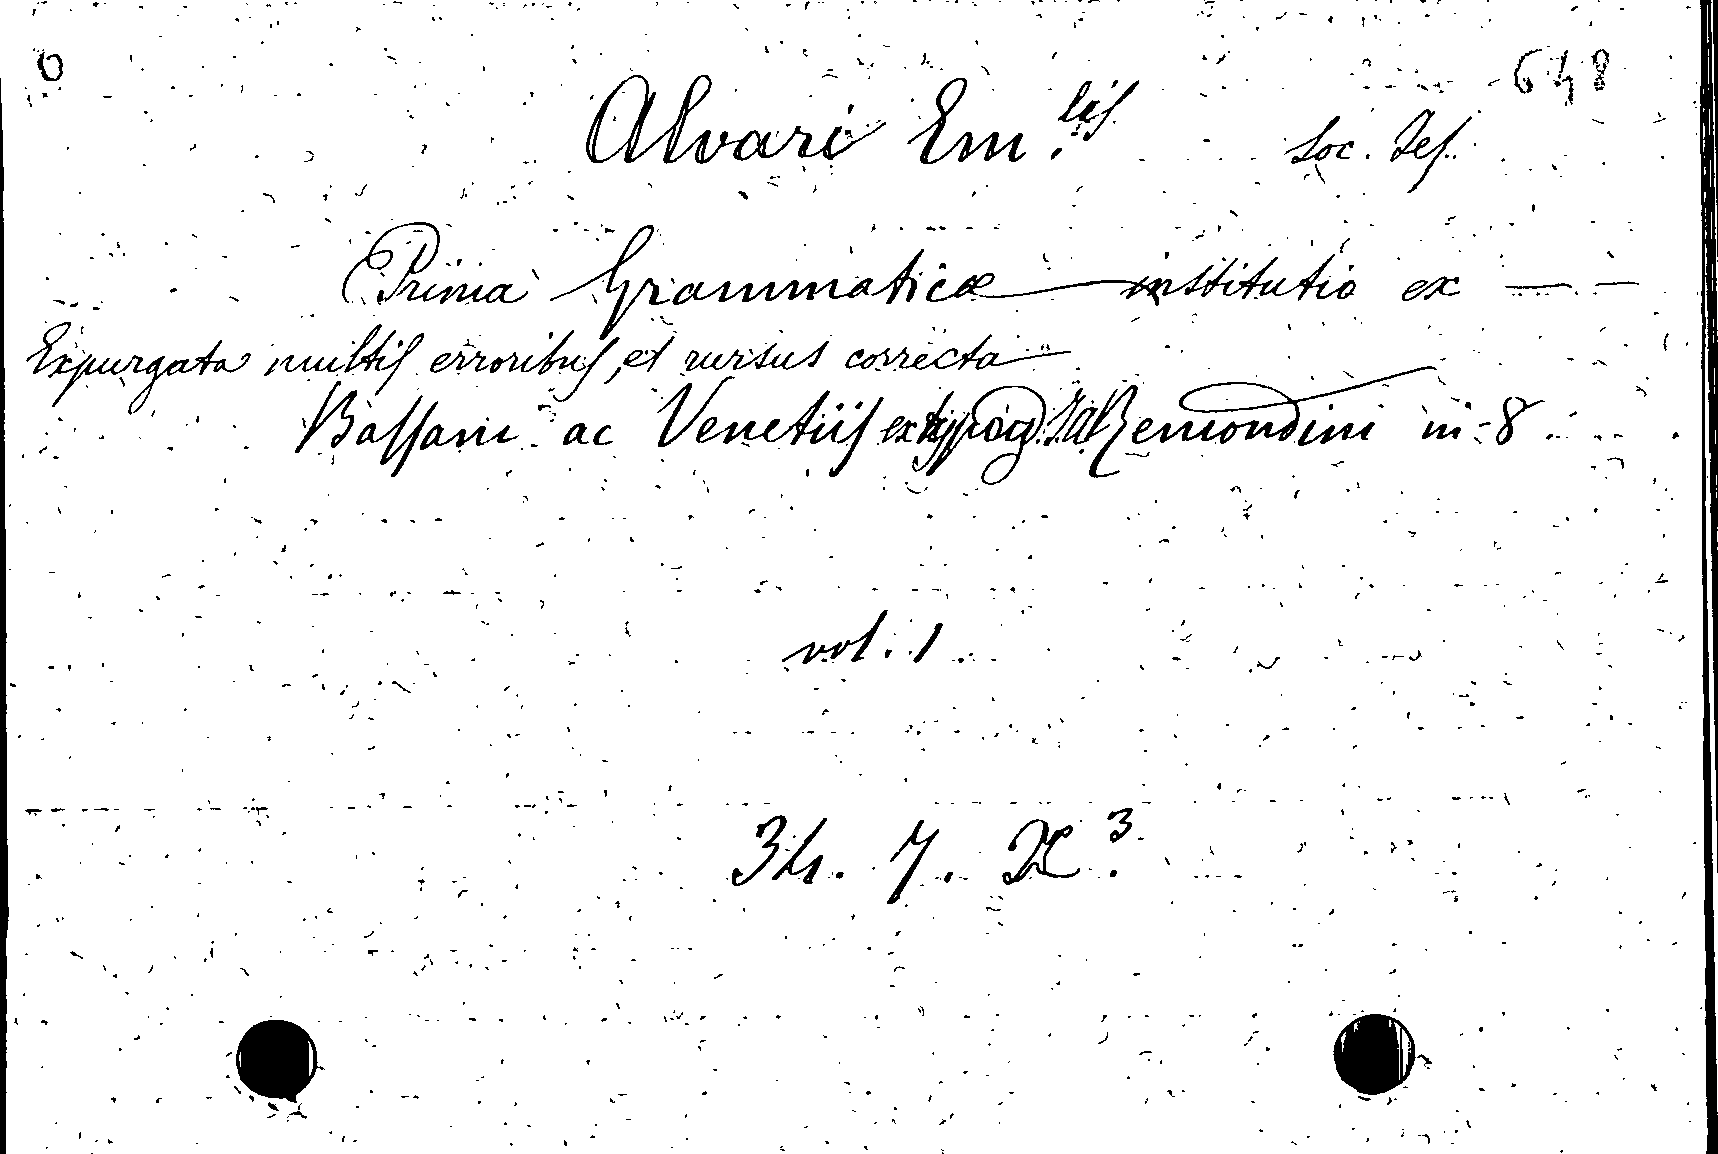 0 648
Alvari Em.lis Soc. Jes.
Prima Grammaticæ institutio ex — —
Expurgata multis erroribus, et rursus correcta
Bassani ac Venetiis ex Remondini in-8
vol. 1.
34. 7. X.3